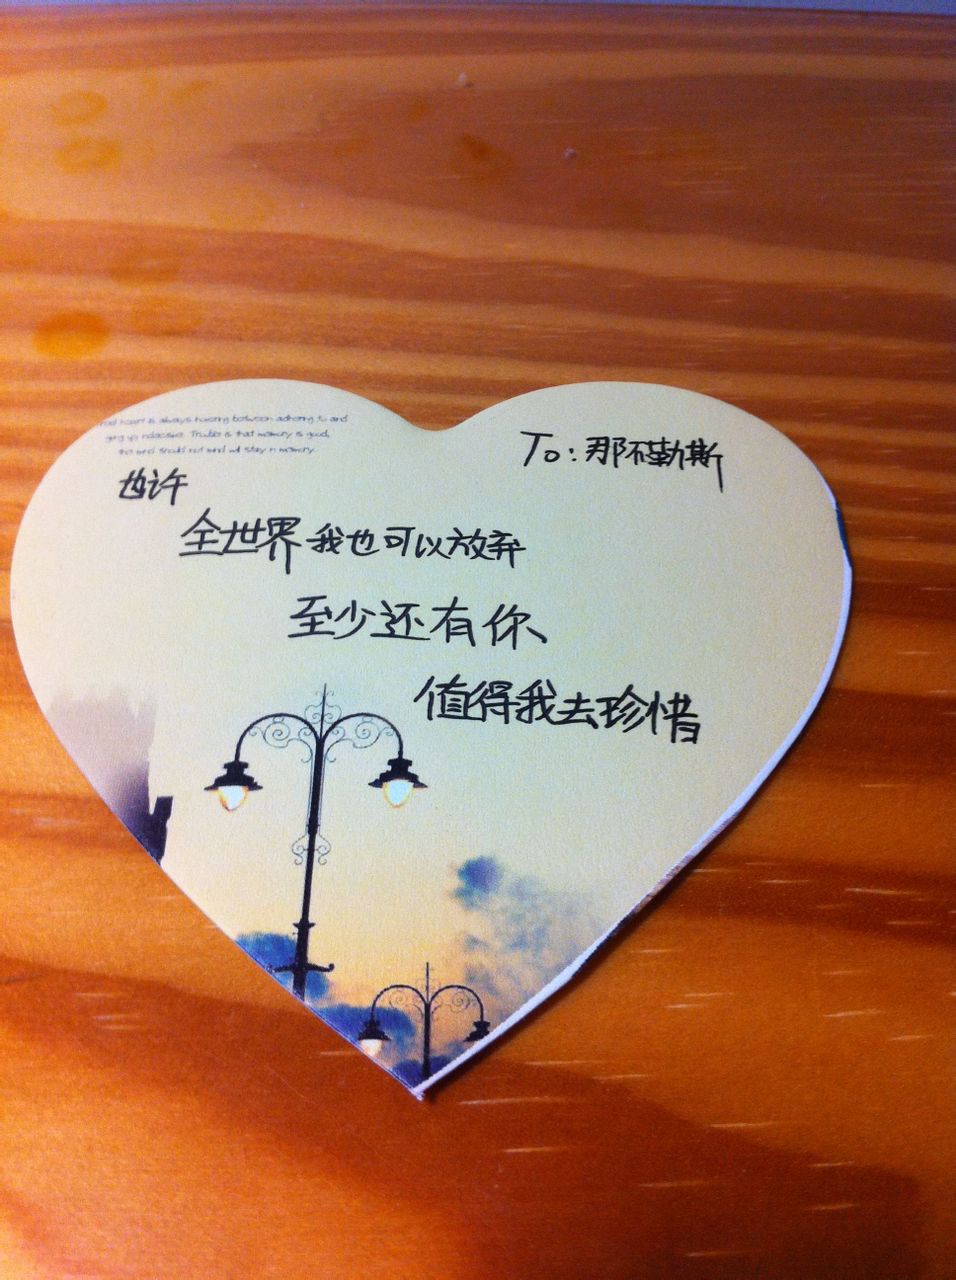 heart is always hovering between adhering to and
Trouble is that memory is good,
that mind should not mind will stay in memory.
To: 那不勒斯
也许
全世界我也可以放弃
至少还有你、
值得我去珍惜